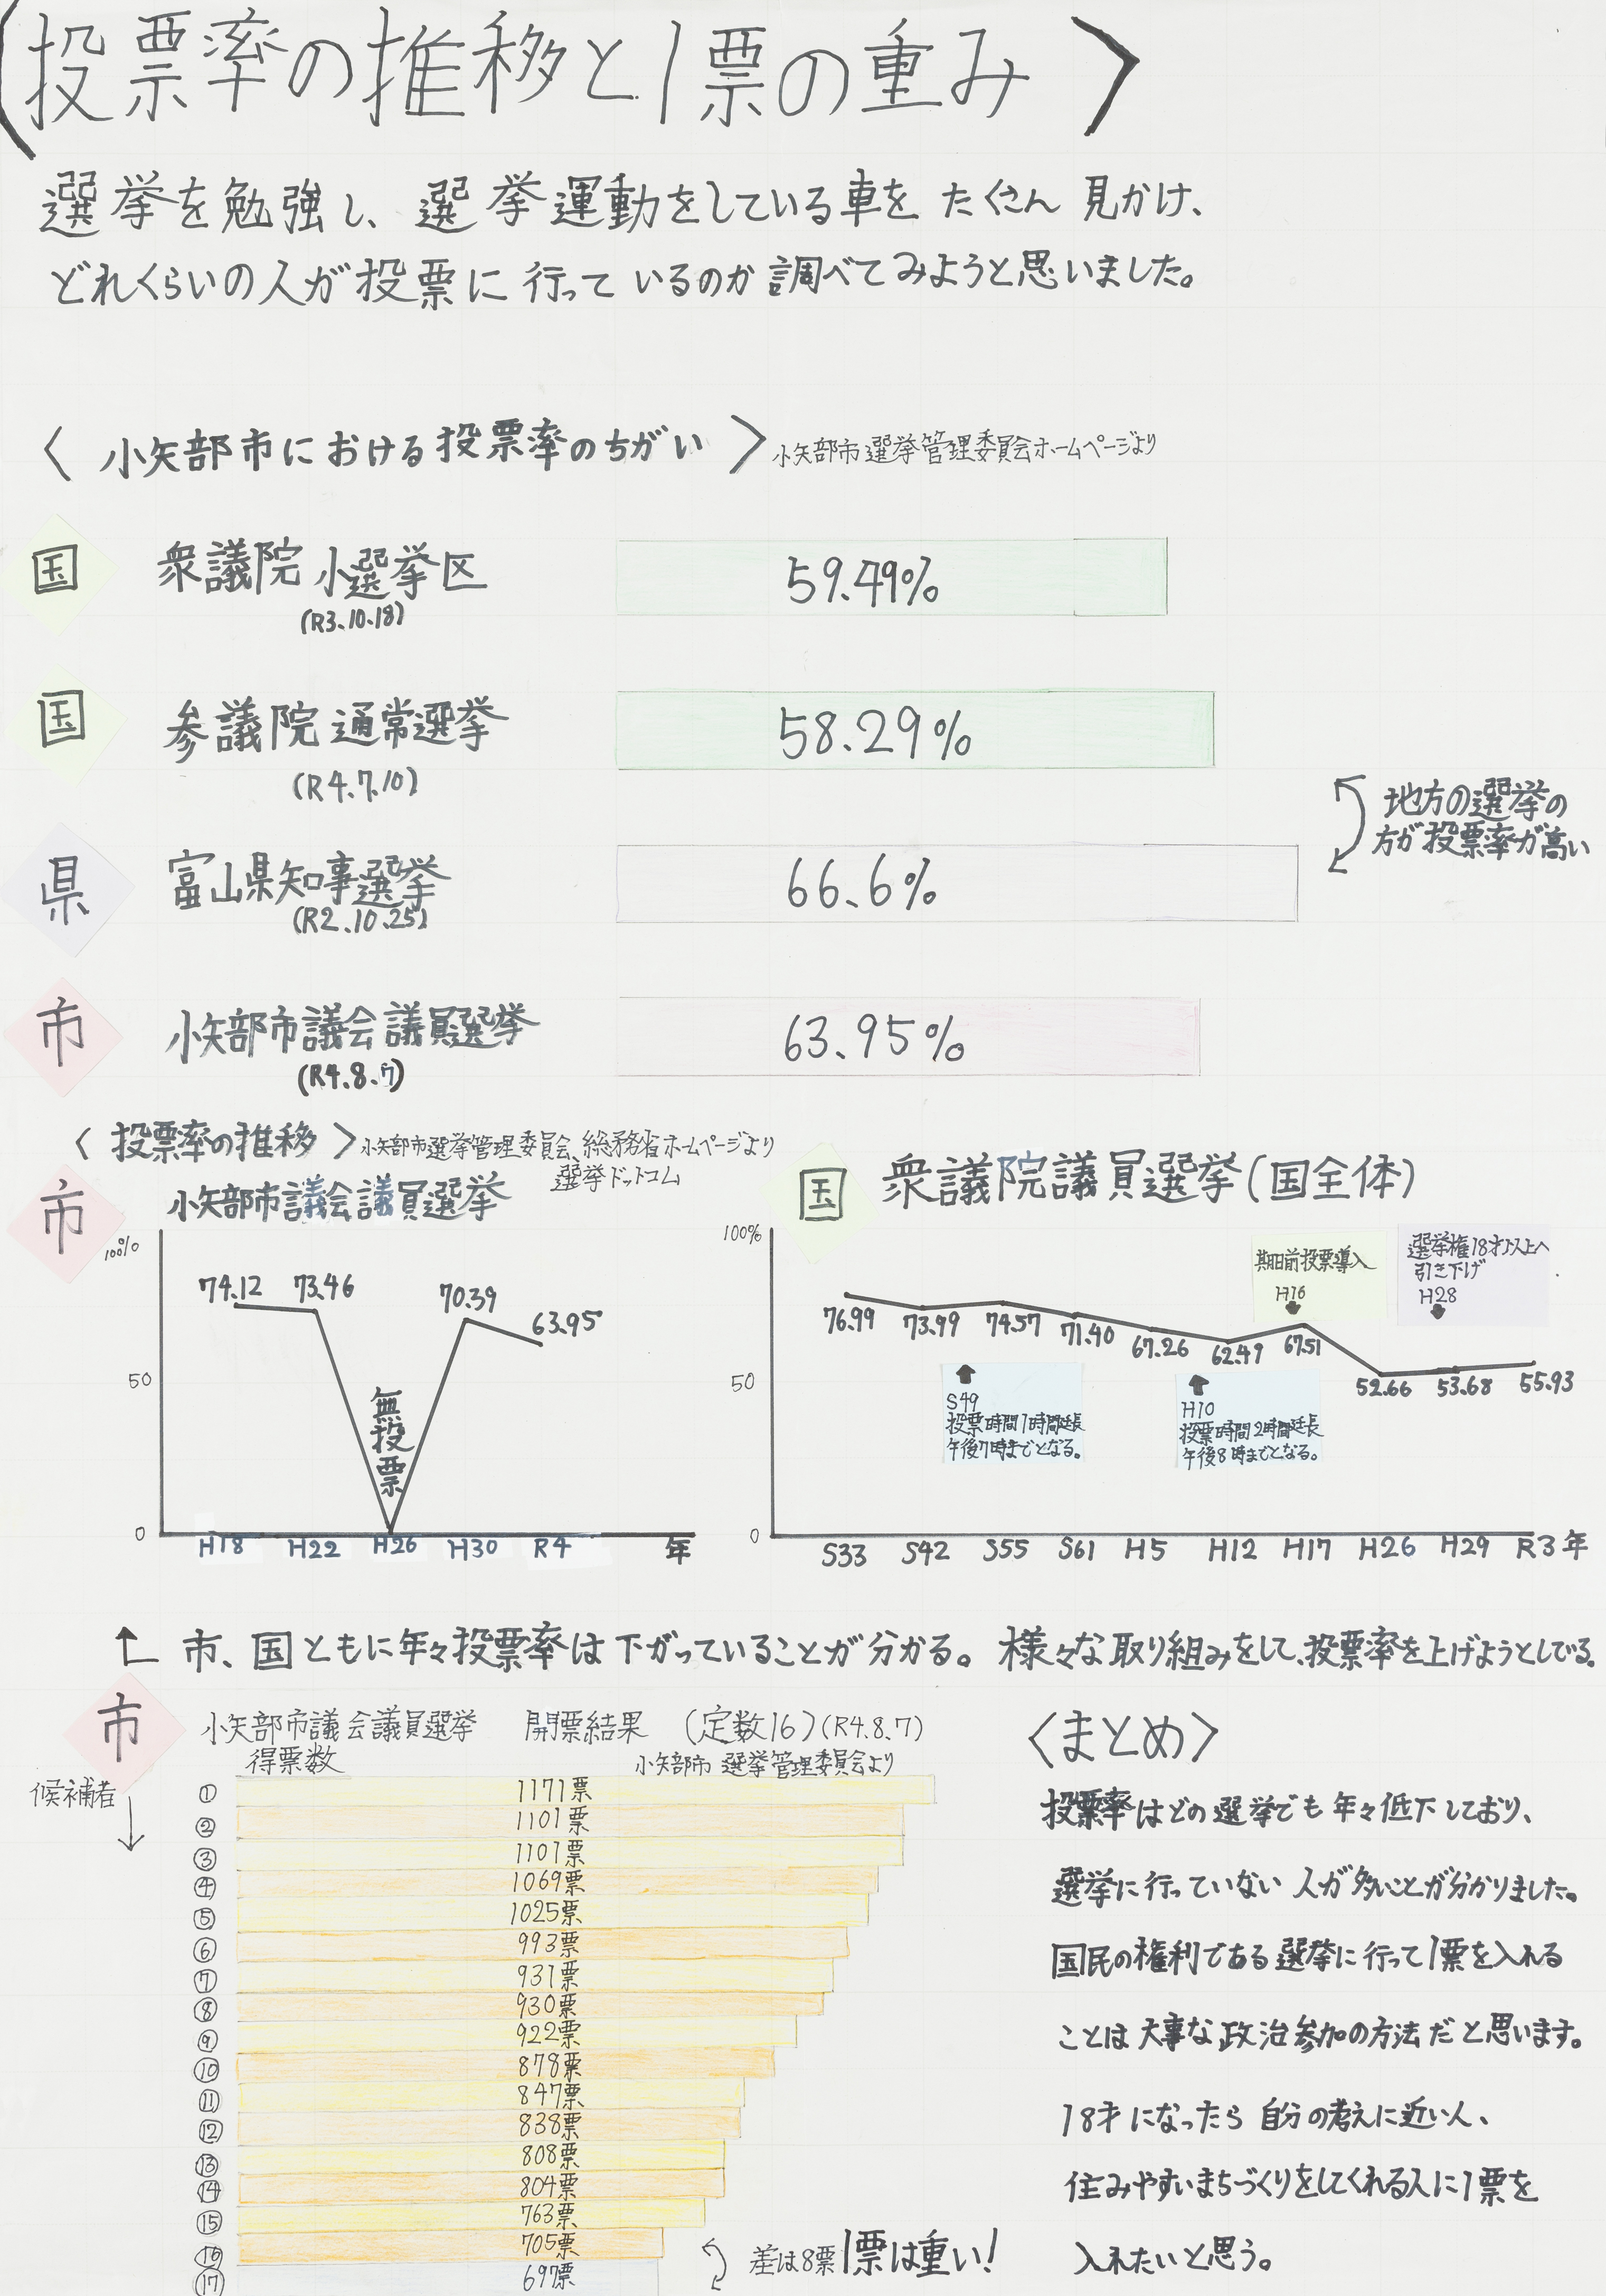 〈投票率の推移と1票の重み〉
選挙を勉強し、選挙運動をしている車をたくさん見かけ、
どれくらいの人が投票に行っているのか調べてみようと思いました。
〈小矢部市における投票率のちがい〉小矢部市選挙管理委員会ホームページより
国 衆議院小選挙区 59.49%
(R3.10.18)
国 参議院通常選挙 58.29%
(R4.7.10)
地方の選挙の
方が投票率が高い
県 富山県知事選挙 66.6%
(R2.10.25)
市 小矢部市議会議員選挙 63.95%
(R4.8.7)
〈投票率の推移〉小矢部市選挙管理委員会、総務省ホームページより
選挙ドットコム
市 小矢部市議会議員選挙
100%
74.12 73.46 70.39 63.95
50
無投票
0
H18 H22 H26 H30 R4 年
国 衆議院議員選挙(国全体)
100%
期日前投票導入
H16
選挙権18才以上へ
引き下げ
H28
76.99 73.99 74.57 71.40 67.26 62.49 67.51 52.66 53.68 55.93
50
S49
投票時間1時間延長
午後7時までとなる。
H10
投票時間2時間延長
午後8時までとなる。
0
S33 S42 S55 S61 H5 H12 H17 H26 H29 R3年
市、国ともに年々投票率は下がっていることが分かる。様々な取り組みをして、投票率を上げようとしてる。
市 小矢部市議会議員選挙 開票結果 (定数16)(R4.8.7)
得票数 小矢部市選挙管理委員会より
候補者
① 1171票
② 1101票
③ 1101票
④ 1069票
⑤ 1025票
⑥ 993票
⑦ 931票
⑧ 930票
⑨ 922票
⑩ 878票
⑪ 847票
⑫ 838票
⑬ 808票
⑭ 804票
⑮ 763票
⑯ 705票
⑰ 697票
差は8票 1票は重い!
〈まとめ〉
投票率はどの選挙でも年々低下しており、
選挙に行っていない人が多いことが分かりました。
国民の権利である選挙に行って1票を入れる
ことは大事な政治参加の方法だと思います。
18才になったら自分の考えに近い人、
住みやすいまちづくりをしてくれる人に1票を
入れたいと思う。